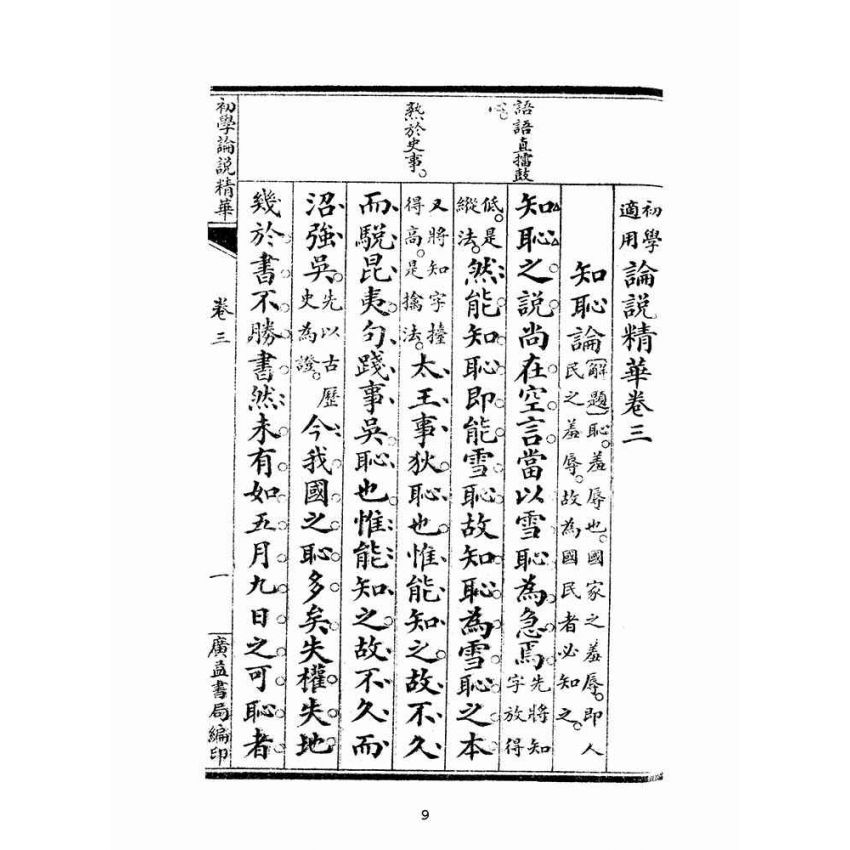 語語直擂鼓
心。
熟於史事。
初學適用論說精華卷三
知恥論(解題)恥。羞辱也。國家之羞辱。即人民之羞辱。故為國民者必知之。
知恥之說尚在空言當以雪恥為急焉。先將知字放得
低。是縱法。然能知恥即能雪恥故知恥為雪恥之本
又將知字擡得高。是擒法。太王事狄恥也惟能知之故不久
而駾昆夷句踐事吳恥也惟能知之故不久而
沼強吳。先以古歷史為證。今我國之恥多矣失權失地
幾於書不勝書然未有如五月九日之可恥者
初學論說精華
卷三
一
廣益書局編印
9